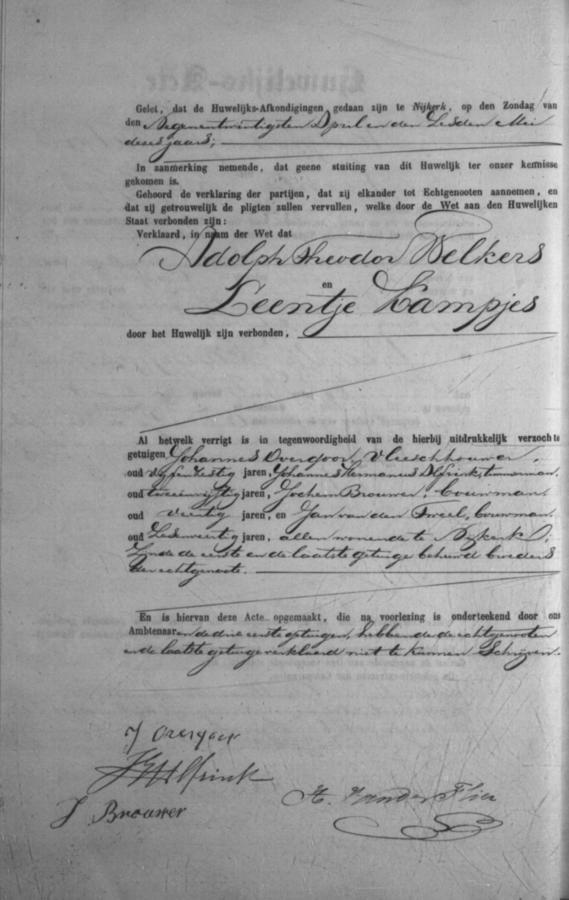 Gelet, dat de Huwelijks-Afkondigingen gedaan zijn te Nijkerk, op den Zondag van
den Negenentwintigsten April en den Zesden Mei
dezes jaars;
In aanmerking nemende, dat geene stuiting van dit Huwelijk ter onzer kennisse
gekomen is.
Gehoord de verklaring der partijen, dat zij elkander tot Echtgenooten aannemen, en
dat zij getrouwelijk de pligten zullen vervullen, welke door de Wet aan den Huwelijken
Staat verbonden zijn:
Verklaard, in naam der Wet dat
Adolph Theodor Welkers
en
Leentje Kampjes
door het Huwelijk zijn verbonden,
Al hetwelk verrigt is in tegenwoordigheid van de hierbij uitdrukkelijk verzochte
getuigen Johannes Overgoor, Vleeschhouwer,
oud vijfenzestig jaren, Johannes Hermanus Elfrink, timmerman,
oud tweeenvijftig jaren, Jochem Brouwer, bouwman,
oud veertig jaren, en Jan van den Tweel, bouwman,
oud zesenveertig jaren, allen wonende te Nijkerk,
zijnde de eerste en de laatste getuige behuwd broeders
der echtgenoote.
En is hiervan deze Acte opgemaakt, die na voorlezing is onderteekend door ons
Ambtenaar en de drie eerste getuigen, hebbende de echtgenooten
en de laatste getuige verklaard niet te kunnen Schrijven.
J Overgoor
JH Elfrink
J Brouwer
H. van der Flier